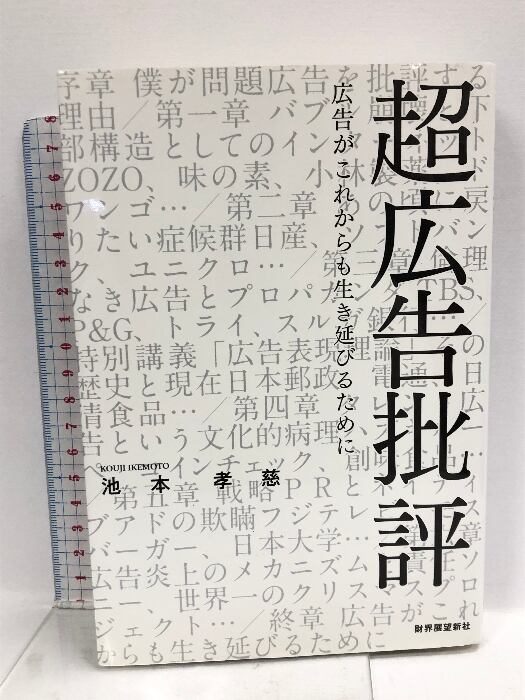 超広告批評
広告がこれからも生き延びるために
KOUJI IKEMOTO
池本孝慈
財界展望新社
序章 僕が問題広告を批評する
理由/第一章 バブ
部構造としてのイン
ZOZO、味の素、小林製薬
ワンゴ…/第二章
りたい症候群日産、
ク、ユニクロ…/第三章 何
なき広告とプロパガ TBS、
P&G、トライ、スルガ銀行…
特別講義「広告表現
歴史と現在日本郵政、電通、日
清食品…/第四章
告という文化的病理
インチェック、創
/第五章 戦略PR
ブアドの欺瞞
バーガー、日本大学
広告炎上のメカニズム
ニー、世界一
ェクト…/終章 広告がこれ
からも生き延びるために